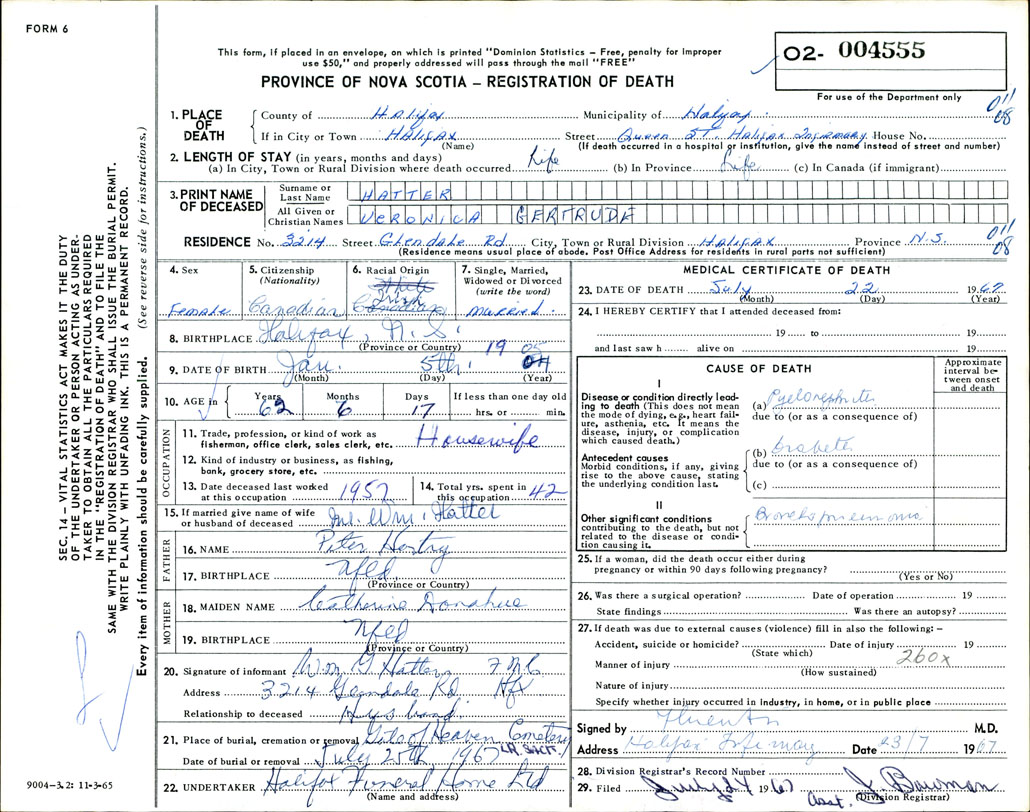 FORM 6
This form, if placed in an envelope, on which is printed "Dominion Statistics – Free, penalty for improper
use $50," and properly addressed will pass through the mail "FREE"
PROVINCE OF NOVA SCOTIA – REGISTRATION OF DEATH
O2- 004555
For use of the Department only
011
08
1. PLACE OF DEATH
County of Halifax Municipality of Halifax
If in City or Town Halifax Street Queen ST. Halifax Infirmary House No.
(Name) (If death occurred in a hospital or institution, give the name instead of street and number)
2. LENGTH OF STAY (in years, months and days)
(a) In City, Town or Rural Division where death occurred Life (b) In Province Life (c) In Canada (if immigrant)
3. PRINT NAME OF DECEASED
Surname or Last Name HATTER
All Given or Christian Names VERONICA GERTRUDE
RESIDENCE No. 3214 Street Glendale Rd City, Town or Rural Division Halifax Province N.S.
(Residence means usual place of abode. Post Office Address for residents in rural parts not sufficient)
011
08
4. Sex
Female
5. Citizenship
(Nationality)
Canadian
6. Racial Origin
White
Irish
Canadian
7. Single, Married,
Widowed or Divorced
(write the word)
Married.
8. BIRTHPLACE Halifax, N.S.
(Province or Country)
9. DATE OF BIRTH Jan. 5th. 19 05 04
(Month) (Day) (Year)
10. AGE in Years Months Days If less than one day old
62 6 17 hrs. or min.
OCCUPATION
11. Trade, profession, or kind of work as
fisherman, office clerk, sales clerk, etc. Housewife
12. Kind of industry or business, as fishing,
bank, grocery store, etc.
13. Date deceased last worked
at this occupation 1957
14. Total yrs. spent in
this occupation 42
15. If married give name of wife
or husband of deceased Mr. Wm. Hatter
FATHER
16. NAME Peter
17. BIRTHPLACE Nfld
(Province or Country)
MOTHER
18. MAIDEN NAME Catherine Donahue
19. BIRTHPLACE Nfld
(Province or Country)
20. Signature of informant Wm G Hatter
Address 3214 Glendale Rd. Hfx
Relationship to deceased Husband.
21. Place of burial, cremation or removal Gate of Heaven Cemetery
Date of burial or removal July 25th, 1967
22. UNDERTAKER Halifax Funeral Home Ltd
(Name and address)
MEDICAL CERTIFICATE OF DEATH
23. DATE OF DEATH July 22 1967
(Month) (Day) (Year)
24. I HEREBY CERTIFY that I attended deceased from:
19 to 19
and last saw h alive on 19
CAUSE OF DEATH
Approximate
interval be-
tween onset
and death
I
Disease or condition directly lead-
ing to death (This does not mean
the mode of dying, e.g., heart fail-
ure, asthenia, etc. It means the
disease, injury, or complication
which caused death.)
(a) Pyelonephritis
due to (or as a consequence of)
Antecedent causes
Morbid conditions, if any, giving
rise to the above cause, stating
the underlying condition last.
(b) Diabetes
due to (or as a consequence of)
(c)
II
Other significant conditions
contributing to the death, but not
related to the disease or condi-
tion causing it.
Bronchopneumonia
25. If a woman, did the death occur either during
pregnancy or within 90 days following pregnancy?
(Yes or No)
26. Was there a surgical operation? Date of operation 19
State findings Was there an autopsy?
27. If death was due to external causes (violence) fill in also the following: –
Accident, suicide or homicide? Date of injury 19
(State which)
260x
Manner of injury
(How sustained)
Nature of injury
Specify whether injury occurred in industry, in home, or in public place
Signed by M.D.
Address Halifax Infirmary Date 23/7 1967
28. Division Registrar's Record Number
29. Filed July 24 1967 Asst. J. Bowman
(Division Registrar)
SEC. 14 – VITAL STATISTICS ACT MAKES IT THE DUTY
OF THE UNDERTAKER OR PERSON ACTING AS UNDER-
TAKER TO OBTAIN ALL THE PARTICULARS REQUIRED
IN THE "REGISTRATION OF DEATH" AND TO FILE THE
SAME WITH THE DIVISION REGISTRAR WHO SHALL ISSUE THE BURIAL PERMIT.
WRITE PLAINLY WITH UNFADING INK. THIS IS A PERMANENT RECORD.
Every item of information should be carefully supplied. (See reverse side for instructions.)
9004-3.2: 11-3-65